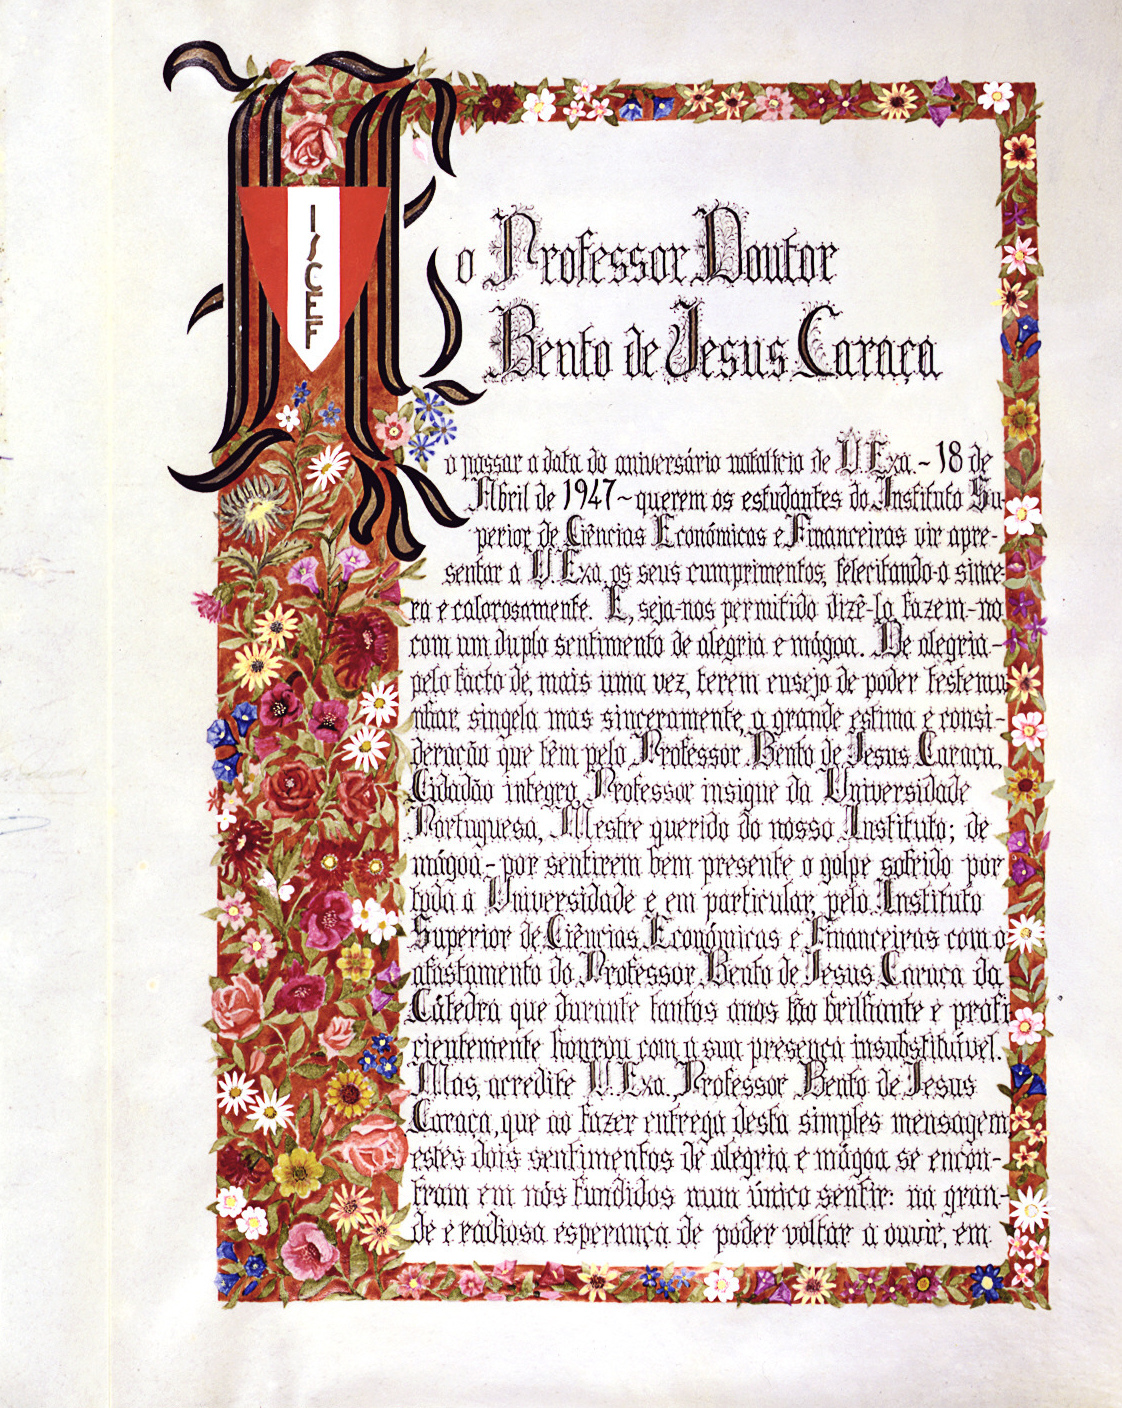 ISCEF
Ao Professor Doutor
Bento de Jesus Caraça
o passar a data do aniversário natalício de V. Exa. ~ 18 de
Abril de 1947 ~ querem os estudantes do Instituto Su-
perior de Ciências Económicas e Financeiras vir apre-
sentar a V. Exa. os seus cumprimentos, felecitando-o since-
ra e calorosamente. E, seja-nos permitido dizê-lo, fazem-no
com um duplo sentimento de alegria e mágoa. De alegria-
pelo facto de, mais uma vez, terem ensejo de poder testemu
nhar, singela mas sinceramente, a grande estima e consi-
deração que têm pelo Professor Bento de Jesus Caraça,
Cidadão integro, Professor insigne da Universidade
Portuguesa, Mestre querido do nosso Instituto; de
mágoa - por sentirem bem presente o golpe sofrido por
toda a Universidade e em particular, pelo Instituto
Superior de Ciências Económicas e Financeiras com o
afastamento do Professor Bento de Jesus Caraça da
Cátedra que durante tantos anos tão brilhante e profi
cientemente honrou com a sua presença insubstituível.
Mas, acredite V. Exa. Professor Bento de Jesus
Caraça, que ao fazer entrega desta simples mensagem
estes dois sentimentos de alegria e mágoa se encon-
tram em nós fundidos num único sentir: na gran-
de e radiosa esperança de poder voltar a ouvir, em